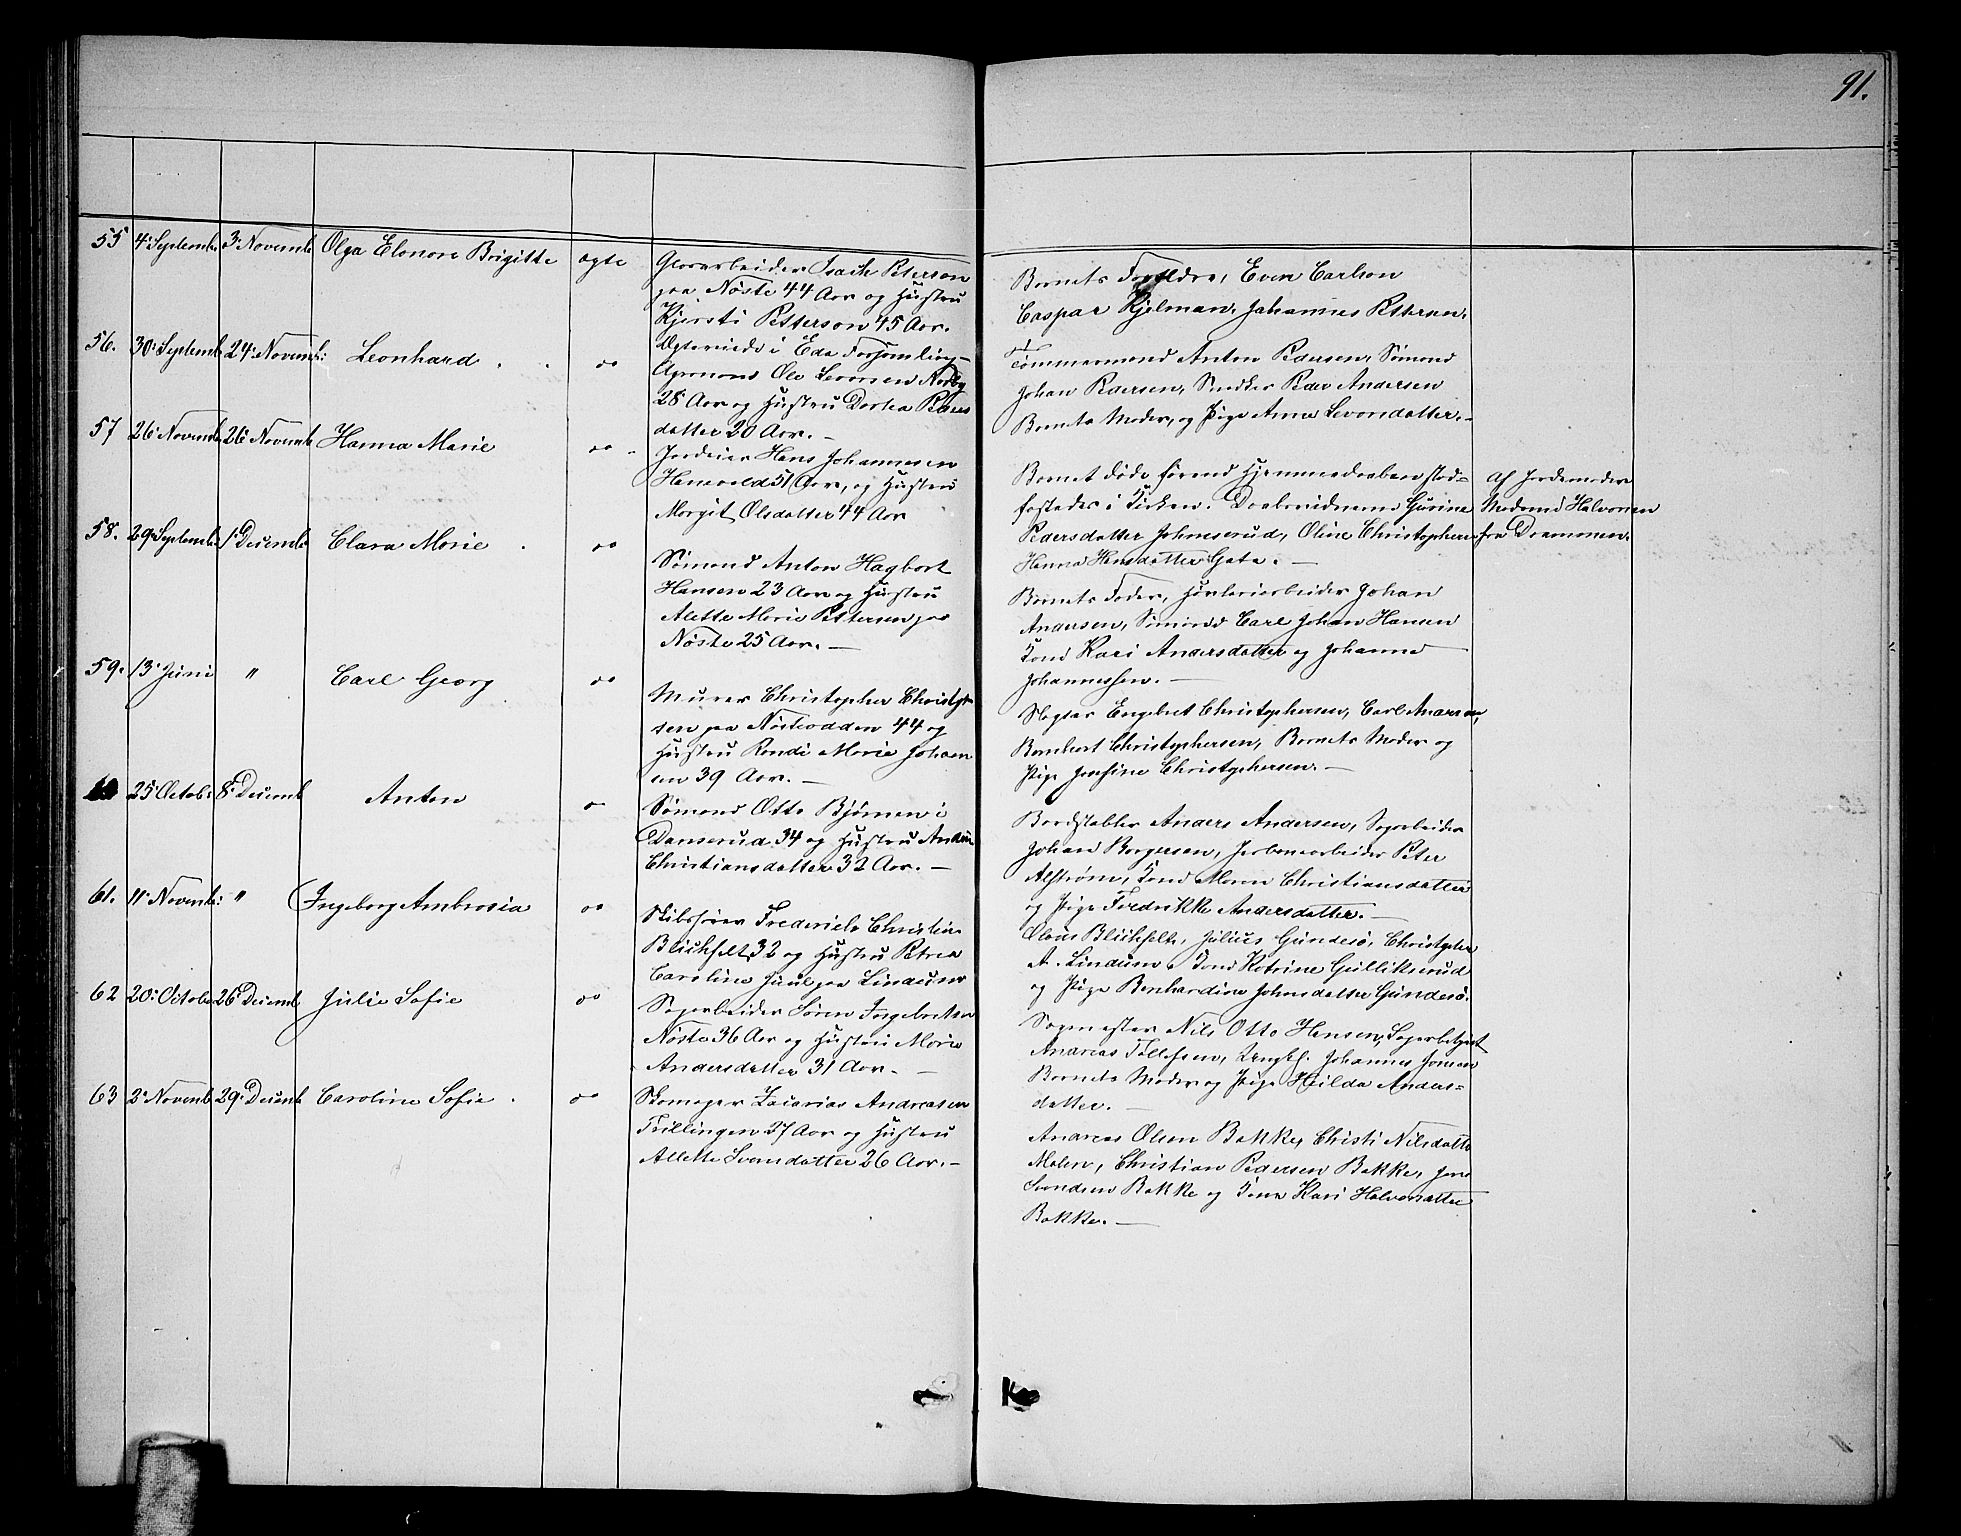 91.
55 4' Septemb. 3' Novemb. Olga Elonore Brigitte ægte Glasarbeider Isach Peterson
paa Nøste 44 Aar og Hustru
Kjersti Petterson 45 Aar.
Børnets Forældre, Even Carlson
Caspar Kjelman, Johannes Pettersen.
56. 30' Septemb. 24' Novemb: Leonhard do Ægteviede i Eda Forsamling
Ole Levorsen
28 Aar og Hustru Dorthea Peders
datter 20 Aar. —
Tømmermand Anton Pedersen, Sømand
Johan Pedersen, Snedker Peder Andersen
Børnets Moder, og Pige Anne Levorsdatter. –
57 26' Novemb. 26' Novemb. Hanna Marie do Jordeier Hans Johannesen
51 Aar, og Hustru
Margit Olsdatter 44 Aar
Barnet døde førend Hjemmedaaben stad-
fæstedes i Kirken. Daabsvidnerne Gurine
Pedersdatter Johnsrud, Oline Christophers
Hanna Hansdatter Gata. —
Af Jordemoder
Madame Halvorsen
fra Drammen.
58. 29' Septemb. 1' Decemb. Clara Marie do Sømand Anton Hagbart
Hansen 23 Aar og Hustru
Alette Marie Pettersen paa
Nøste 25 Aar. —
Barnets Fader, Høvleriarbeider Johan
Andersen, Sømand Carl Johan Hansen
Kone Kari Andersdatter og Johanne
Johannessen. —
59. 13' Juni " Carl Georg do Murer Christopher Christoph
sen paa Nøsteodden 44 og
Hustru Randi Marie Johan
en 39 Aar. —
Slagter Engebret Christophersen, Carl Andersen,
Bernhart Christophersen, Barnets Moder og
Pige Josefine Christophersen. —
25' Octob: 8' Decemb Anton do Sømand Otto Bjørnsen i
Danserud 34 og Hustru
Christiansdatter 32 Aar. —
Bordstabler Anders Andersen, Sagarbeider
Johan Borgersen, Jernbanearbeider Peter
Alstrøm, Kone Maren Christiansdatter
og Pige Fredrikke Andersdatter. —
61. 11' Novemb: " Ingeborg Ambrosia do Skibsfører Frederick Christian
Blichfelt 32 og Hustru Petrea
Caroline Juul paa Lindum
Olaus Blichfelt, Julius Gundesø, Christopher
A. Lindum, Kone Katrine Gulliksrud
og Pige Bernhardine Johnsdatter Gundesø.
62 20' Octob. 26' Decemb. Julie Sofie do Sagarbeider Søren Ingebretsen
Nøste 36 Aar og Hustru Marie
Andersdatter 31 Aar. —
Sagmester Nils Otto Hansen, Sagarbeider
Andreas Tollefsen, Ungk. Johannes Jonsen
Barnets Moder og Pige Hilda Anders-
datter. —
63 2' Novemb 29' Decemb. Caroline Sofie do Skomager Zacarias Andreasen
Trillingen 27 Aar og Hustru
Allette Svensdatter 26 Aar. –
Andreas Olsen Bakke, Christi Nilsdatter
Malen, Christian Pedersen Bakke, Jens
Svendsen Bakke og Kone Kari Halvorsdatter
Bakke. —